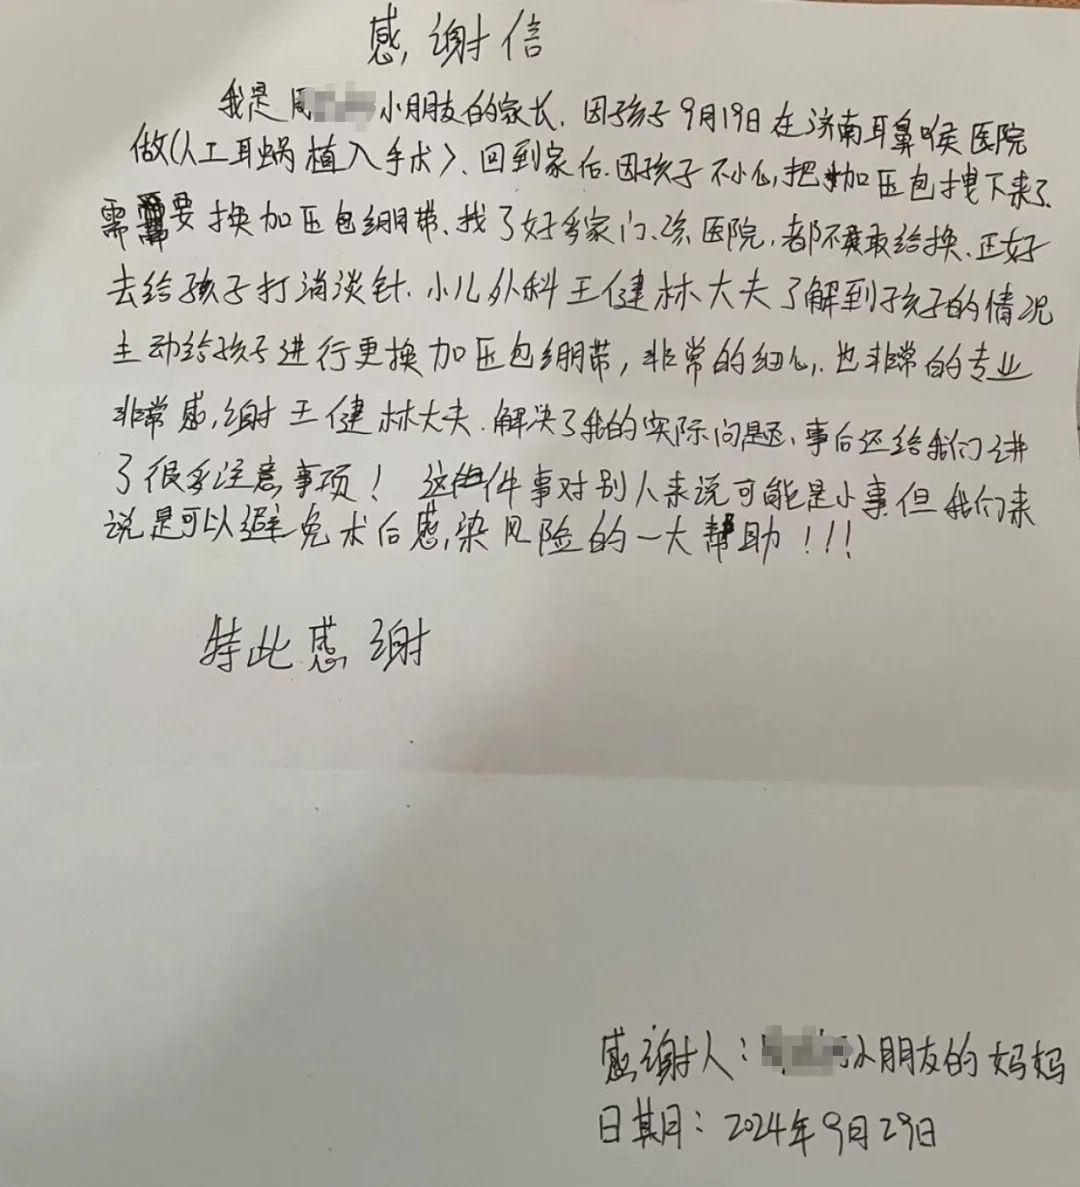 感谢信
我是周小朋友的家长.因孩子9月19日在济南耳鼻喉医院
做(人工耳蜗植入手术)、回到家后.因孩子不小心,把加压包拽下来了.
需要换加压包绷带、找了好多家门诊医院,都不敢给换.正好
去给孩子打消淡针.小儿外科王健林大夫了解到孩子的情况
主动给孩子进行更换加压包绷带,非常的细心.也非常的专业
非常感谢王健林大夫.解决了我的实际问题、事后还给我们讲
了很多注意事项!这件事对别人来说可能是小事但我们来
说是可以避免术后感染风险的一大帮助!!!
特此感谢
感谢人:小朋友的妈妈
日期:2024年9月29日